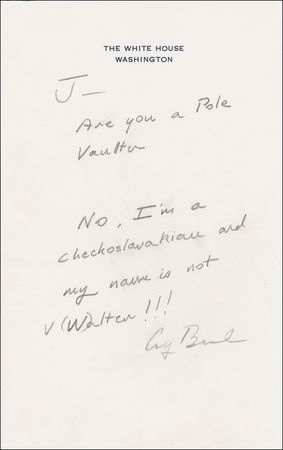 THE WHITE HOUSE
WASHINGTON
J—
Are you a Pole
Vaulter
No, I'm a
checkoslavakian and
my name is not
V(W)alter!!!